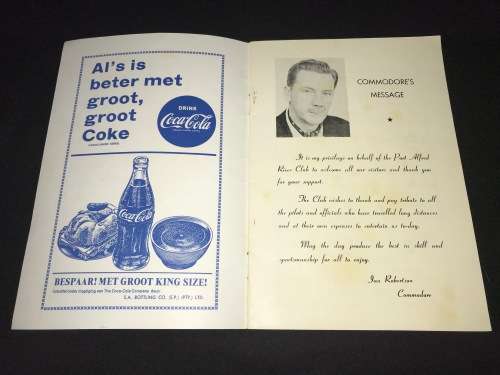 Al's is
beter met
groot,
groot
Coke
DRINK
Coca-Cola
Coca-Cola
BESPAAR! MET GROOT KING SIZE!
S.A. BOTTLING CO. (E.P.) (PTY.) LTD.
COMMODORE'S
MESSAGE
It is my privilege on behalf of the Port Alfred
River Club to welcome all our visitors and thank you
for your support.
The Club wishes to thank and pay tribute to all
the pilots and officials who have travelled long distances
and at their own expenses to entertain us to-day.
May the day produce the best in skill and
sportsmanship for all to enjoy.
Ian Robertson
Commodore